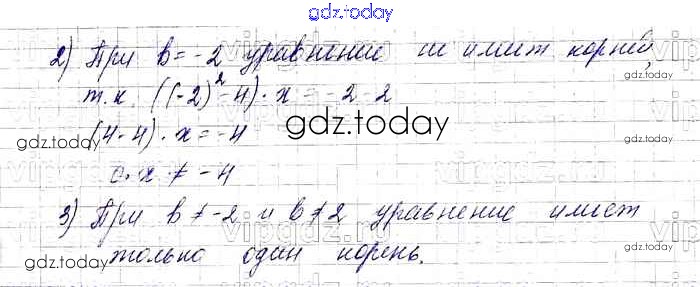 gdz.today
2) При b = -2 уравнение не имеет корней,
т.к. ((-2)²-4)·x = -2-2
(4-4)·x = -4
gdz.today
0·x ≠ -4
3) При b ≠ -2 и b ≠ 2 уравнение имеет
только один корень.
gdz.today
gdz.today